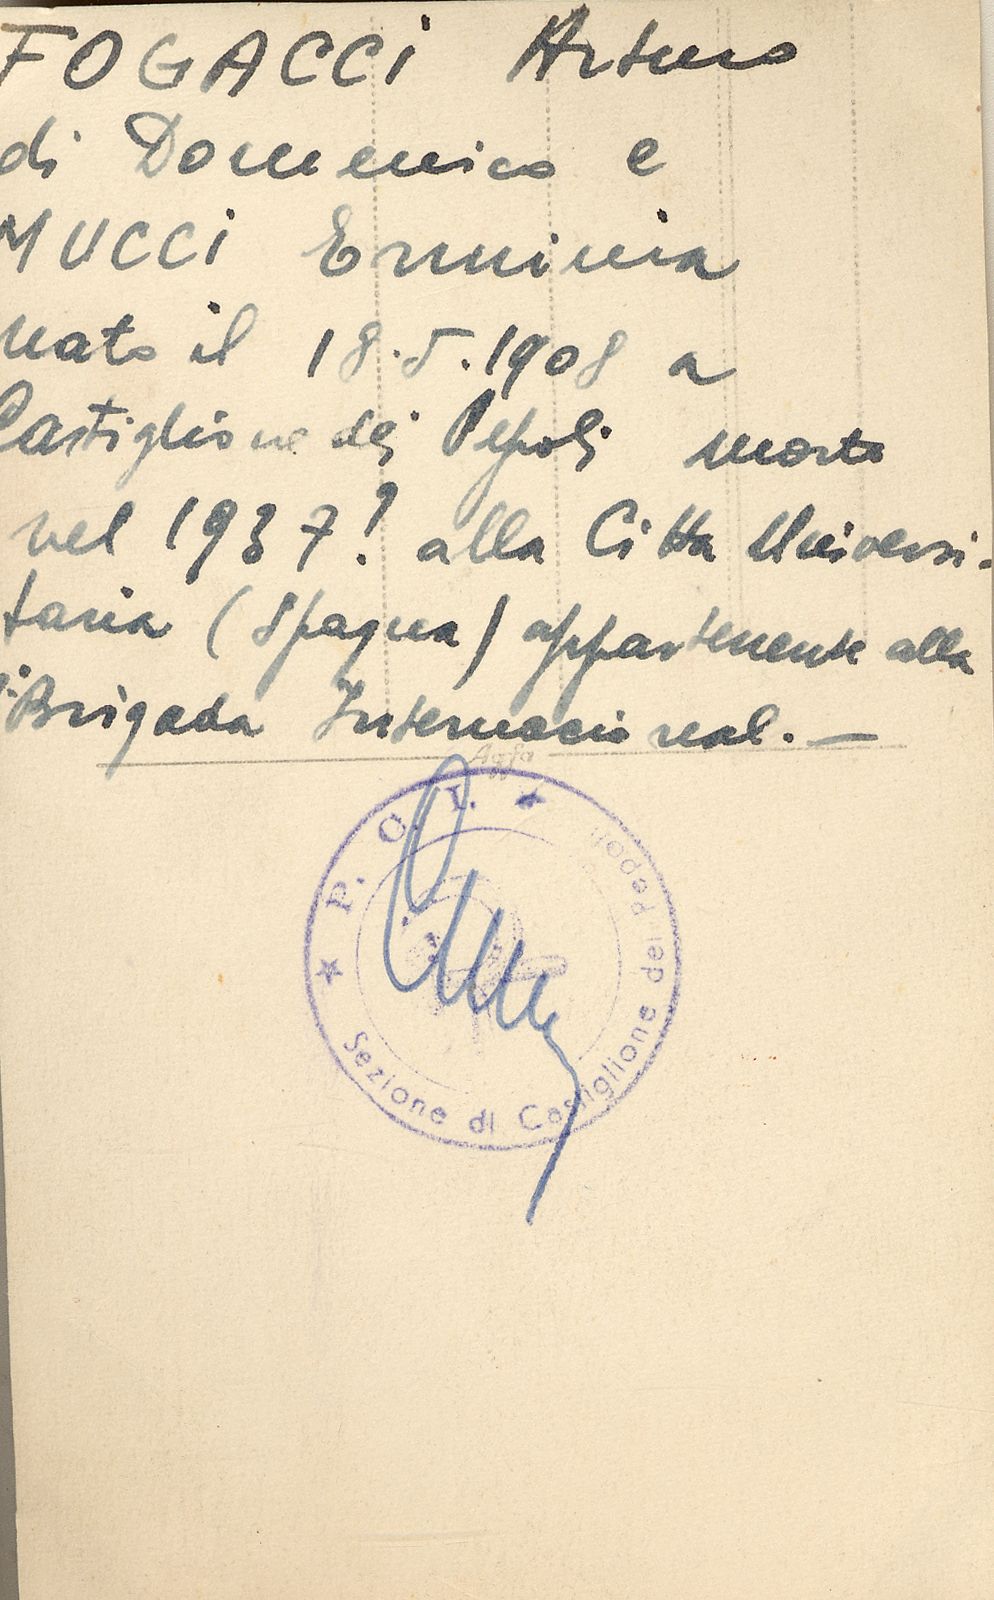 FOGACCI Arturo
di Domenico e
MUCCI Erminia
nato il 18.5.1908 a
Castiglione dei Pepoli morto
nel 1937? alla Citta Universi-
taria (Spagna) appartenente alla
Brigada Internacional. —
Agfa
★ P. C. I. ★
Sezione di Castiglione dei Pepoli